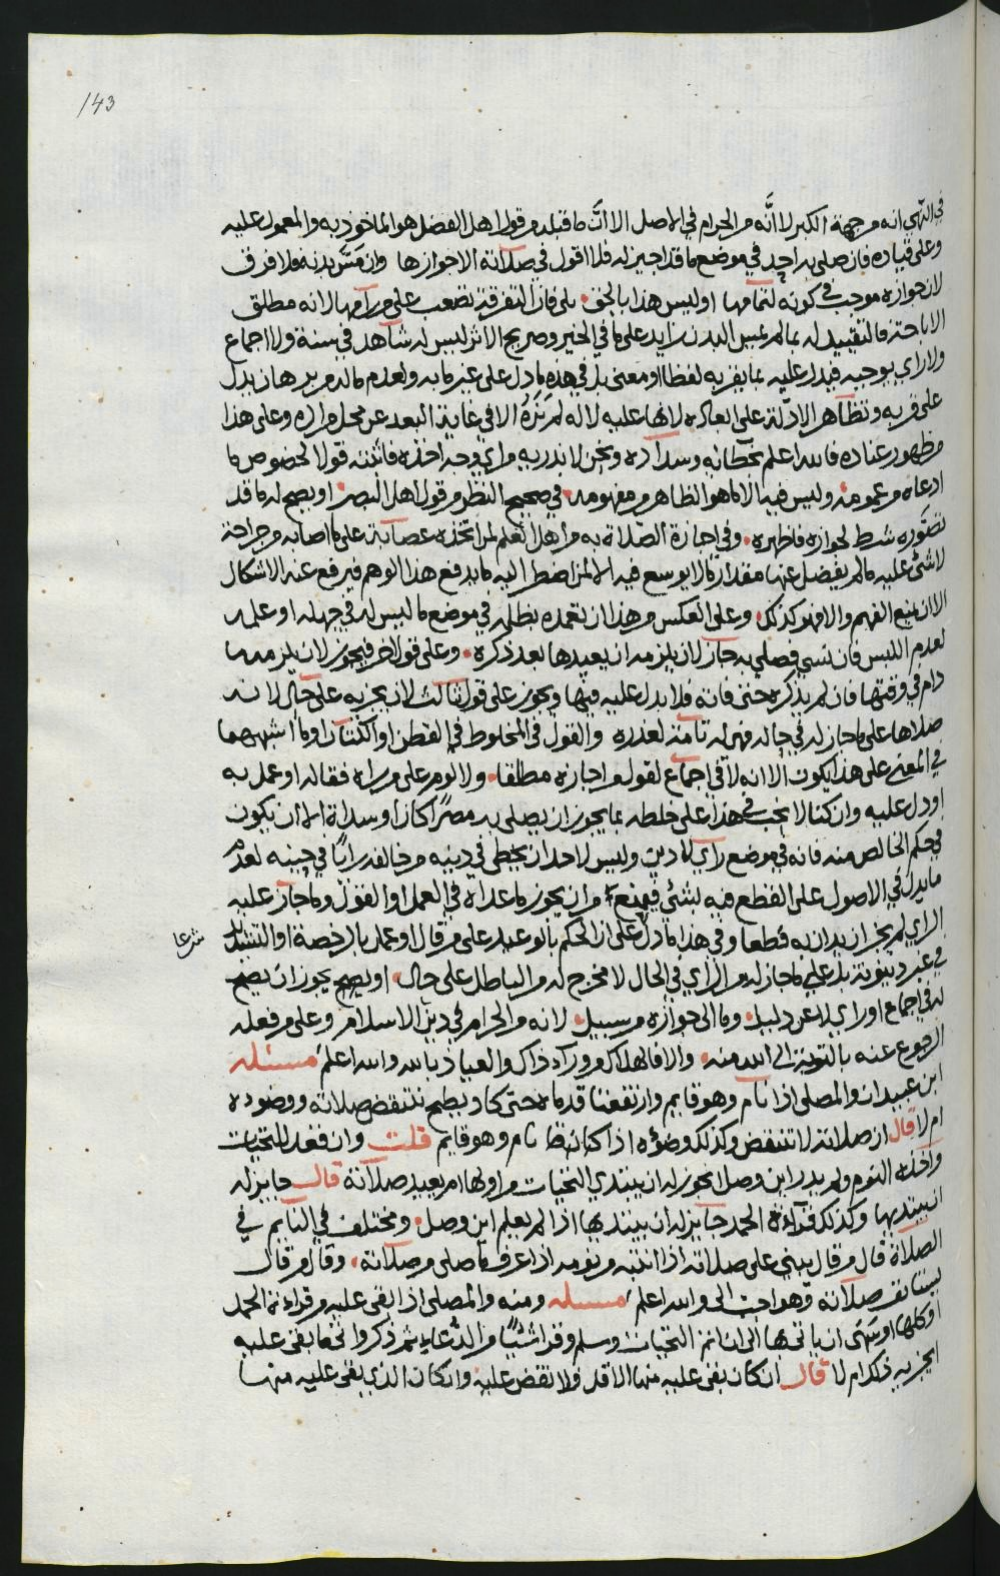 143
في النهي انه من جهة الكبر لا انه من الحرام في الاصل الا ان ما قبله من قول اهل الفضل هو الماخوذ به والمعمول عليه
وعلى قياده فان صلى به احد في موضع ما قد اجيز له فلا اقول في صلاته الا جوازها وان مس بدنه فلا فرق
لان جوازه موجب في كونه لتمامها اوليس هذا بالحق بلى فان التفرقة تصعب على من رامها لانه مطلق
الاباحة فالتقييد له بما لم يمس البدن زايد على ما في الخبر وصريح الاثر ليس له شاهد في سنة ولا اجماع
ولا راي يوجبه فيدل عليه بما يقربه لفظا او معنى بل في هذه ما دل على غير ما به ولعدم ما له من برهان يدل
على قربه وتظاهر الادلة على ابعاده لانها عليه لا له لم نره الا في غاية البعد عن محل مراده وعلى هذا
من ظهور عناده فالله اعلم بخطائه وسداده ونحن لا ندري به من اي وجه اخذه فاثبته قولا لخصوص ما
ادعاه من عمومه وليس فيه الا ما هو الظاهر من مفهومه في صحيح النظر من قول اهل البصر او يصح له ما قد
تصوره شرط لجوازه فاظهره وفي اجازة الصلاة به من اهل العلم لمن اتخذه عصابة على ما اصابه من جراحة
لا شئ عليه ما لم يفضل عنها مقدار ما لا يوسع فيه الا لمن اضطر اليه ما يدفع هذا الوهم فيرفع عنه الاشكال
الا ان يمنع الفهم والا فهو كذلك وعلى العكس من هذا ان تعمده بظلم في موضع ما ليس له في جهله او علمه
لعدم اللبس فان نسي فصلى به جاز لان يلزمه ان يعيدها بعد ذكره وعلى قول اخر فيجوز لان يلزمه ما
دام في وقتها فان لم يذكره حتى فاته فلا بدل عليه فيها ويجوز على قول ثالث لان يجزيه على حال لانه
صلاها على ما جاز له في حاله فهي له تامة لعذره والقول في المخلوط في القطن او الكتان وما اشبههما
في المعنى على هذا يكون الا انه لا في اجماع لقول من اجازه مطلقا ولا لوم على من راه فقاله او عمل به
او دل عليه وان كنا لا نحب في هذا على خلطه بما يجوز ان يصلى به مصرا كان او سداة الا ان يكون
في حكم الخالص منه فانه في موضع راي لا دين وليس لاحد ان يخطي في دينه من خالفه رايا في حينه لعدم
ما يدل في الاصول على القطع فيه بشئ فيمنع من ان يجوز ما عداه في العمل او القول وما جاز عليه
الراي لم يجز ان يدان به قطعا وفي هذا ما دل على ان الحكم بالوعيد على من قال او عمل بالرخصة او التشديد شرعا
في غير دينونة بل على ما جاز له من الراي في الحال لا مخرج له من الباطل على حال او يصح يجوز ان يصح
له في اجماع او راي لا عن دليل وما الى جوازه من سبيل لانه من الحرام في دين الاسلام وعلى من فعله
الرجوع عنه بالتوبة الى الله منه والا فالهلاك من وراء ذاك والعياذ بالله والله اعلم مسئله
ابن عبيدان والمصلي اذا نام وهو قايم وارتفعتا قدماه حتى كاد يطيح تنتقض صلاته ووضوءه
ام لا قال ان صلاته لا تنتقض وكذلك وضوءه اذا كان نام وهو قايم قلت وان قعد للتحيات
واخذه النوم ولم يدر اين وصل ايجوز له ان يبتدي التحيات من اولها ام يعيد صلاته قال جايز له
ان يبتديها وكذلك قراءة الحمد جايز له ان يبتديها اذا لم يعلم اين وصل ومختلف في النايم في
الصلاة قال من قال يبني على صلاته اذا انتبه من نومه اذا عرف ما صلى من صلاته وقال من قال
يستانف صلاته وهو احب الي والله اعلم مسئله ومنه والمصلي اذا بقي عليه من قراءة الحمد
او كلها او سهى ان ياتي بها الى ان اتم التحيات وسلم وقرا شيئا من الدعاء ثم ذكر وانما بقي عليه
ايجزيه ذلك ام لا قال ان كان بقي عليه منها الاقل فلا نقض عليه وان كان الذي بقي عليه منها